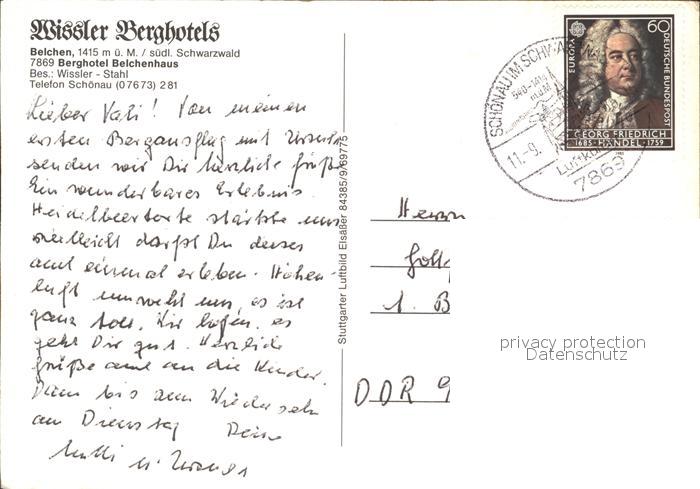 Wissler Berghotels
Belchen, 1415 m ü. M. / südl. Schwarzwald
7869 Berghotel Belchenhaus
Bes.: Wissler - Stahl
Telefon Schönau (07673) 2 81
Lieber Vati! Von meinem
ersten Bergausflug mit
senden wir Dir herzliche Grüße
Ein wunderbares Erlebnis.
Heidelbeertorte stärkte uns
vielleicht darfst Du dieses
auch einmal erleben. Höhen-
luft umweht uns, es ist
ganz toll. Wir hoffen, es
geht Dir gut. Herzliche
Grüße auch an die Kinder.
Dann bis zum Wiedersehn
am Dienstag Deine
Mutti u.
Stuttgarter Luftbild Elsäßer 84385/9/69775
EUROPA
60
DEUTSCHE BUNDESPOST
GEORG FRIEDRICH
1685 HÄNDEL 1759
SCHÖNAU IM SCHW
11.-9.
Luftku
7869
Herrn
1. B
DDR 9
privacy protection
Datenschutz